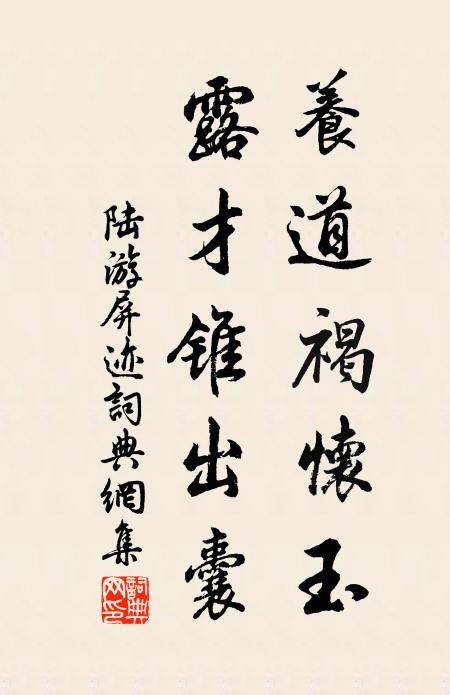 養道褐懷玉
露才錐出囊
陆游屏迹詞典網集
詞典网印